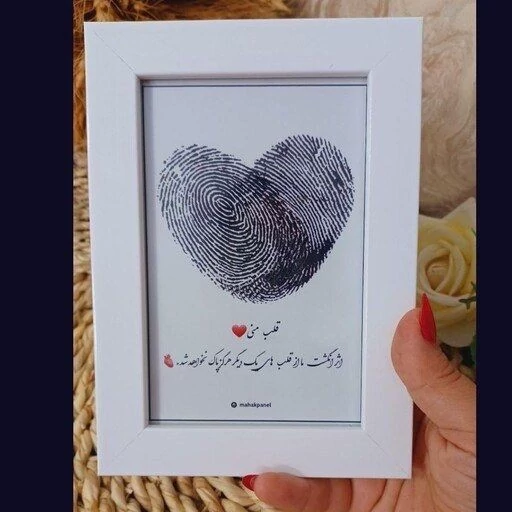 قلب منی❤️
اثر انگشت ما از قلب های یک دیگر هرگز پاک نخواهد شد. 🫀
mahakpanel